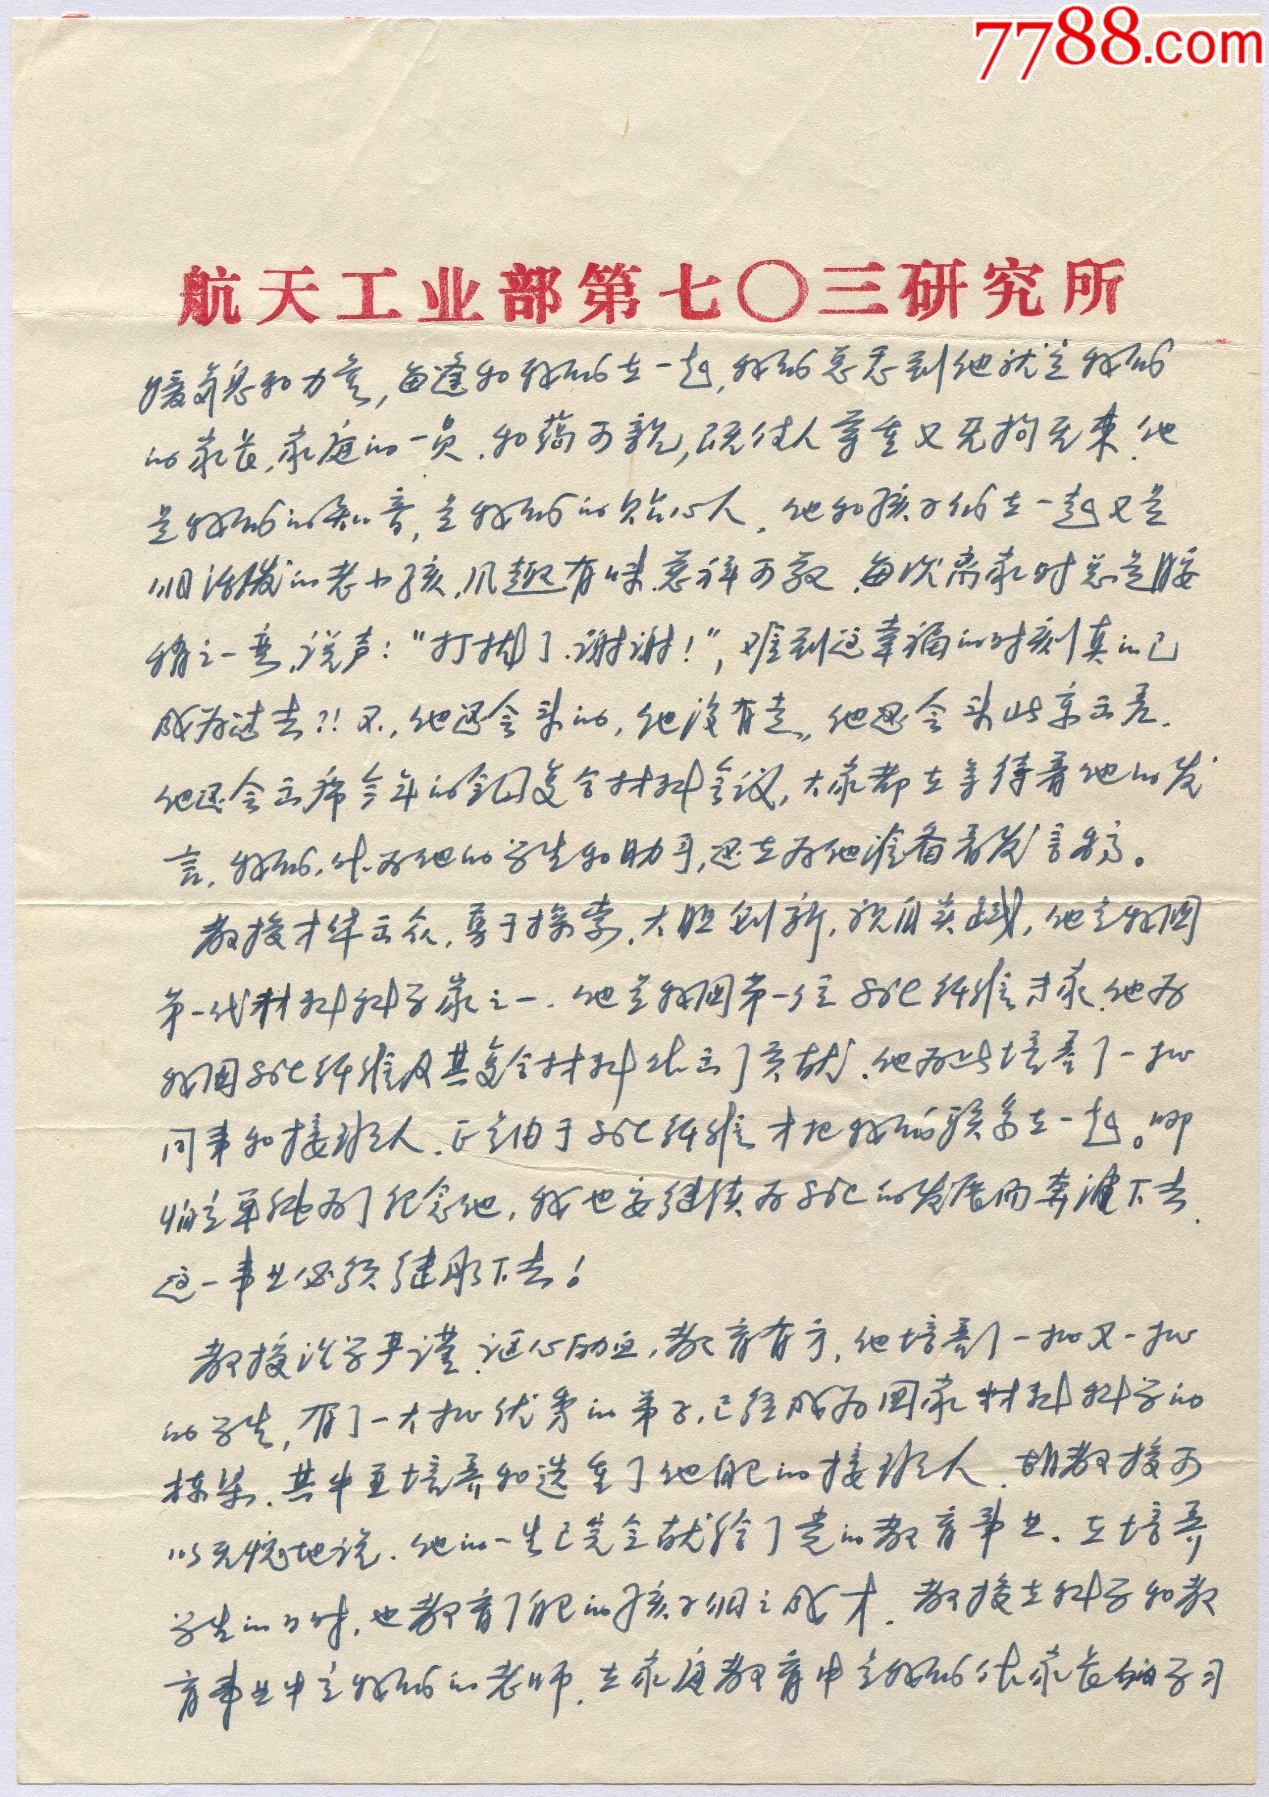 7788.com
航天工业部第七〇三研究所
暖气息和力量,每逢和我们在一起,我们总感到他就是我们
的家长,家庭的一员.和蔼可亲,既使人尊重又无拘无束.他
是我们的知音,是我们的贴心人.他和孩子们在一起又是
活泼的老小孩,风趣有味.慈祥可敬.每次离家时总是腰
弯之一弯,说声:“打扰了.谢谢!”,难到这幸福的时刻真的已
成为过去?!不,他还会来的,他没有走,他还会来北京出差.
他还会出席今年的全国复合材料会议,大家都在等待着他的发
言,我们,作为他的学生和助手,还在为他准备着发言稿。
教授才华出众,勇于探索,大胆创新,亲自实践,他是我国
第一代材料科学家之一.他是我国第一位SiC纤维专家.他为
我国SiC纤维及其复合材料作出了贡献.他为此培养了一批
同事和接班人.正是由于SiC纤维才把我们联系在一起。哪
怕是单纯为了纪念他,我也要继续为SiC的发展而奔波下去.
这一事业必须继承下去!
教授治学严谨.海人,教育有方,他培养了一批又一批
的学生,有了一大批优秀的弟子,已经成为国家材料科学的
栋梁.其中也培养和选准了他自己的接班人.胡教授可
以无愧地说.他的一生已完全献给了党的教育事业.在培养
学生的同时,也教育了自己的孩子们之成才.教授在科学和教
育事业中是我们的老师.在家庭教育中是我们作家长的学习